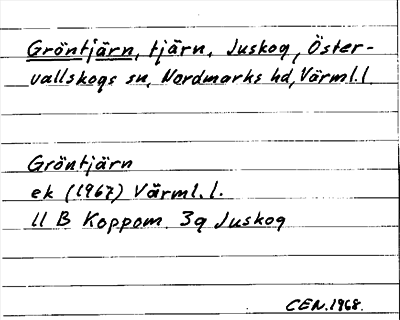 Gröntjärn, tjärn, Juskog, Öster-
vallskogs sn, Nordmarks hd, Värml.l.
Gröntjärn
ek (1967) Värml.l.
11 B Koppom 3q Juskog
CEN.1968.